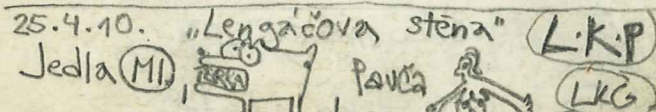 25.4.10. „Lengáčova stěna" L.K.P
Jedla MI, Pavča LKG